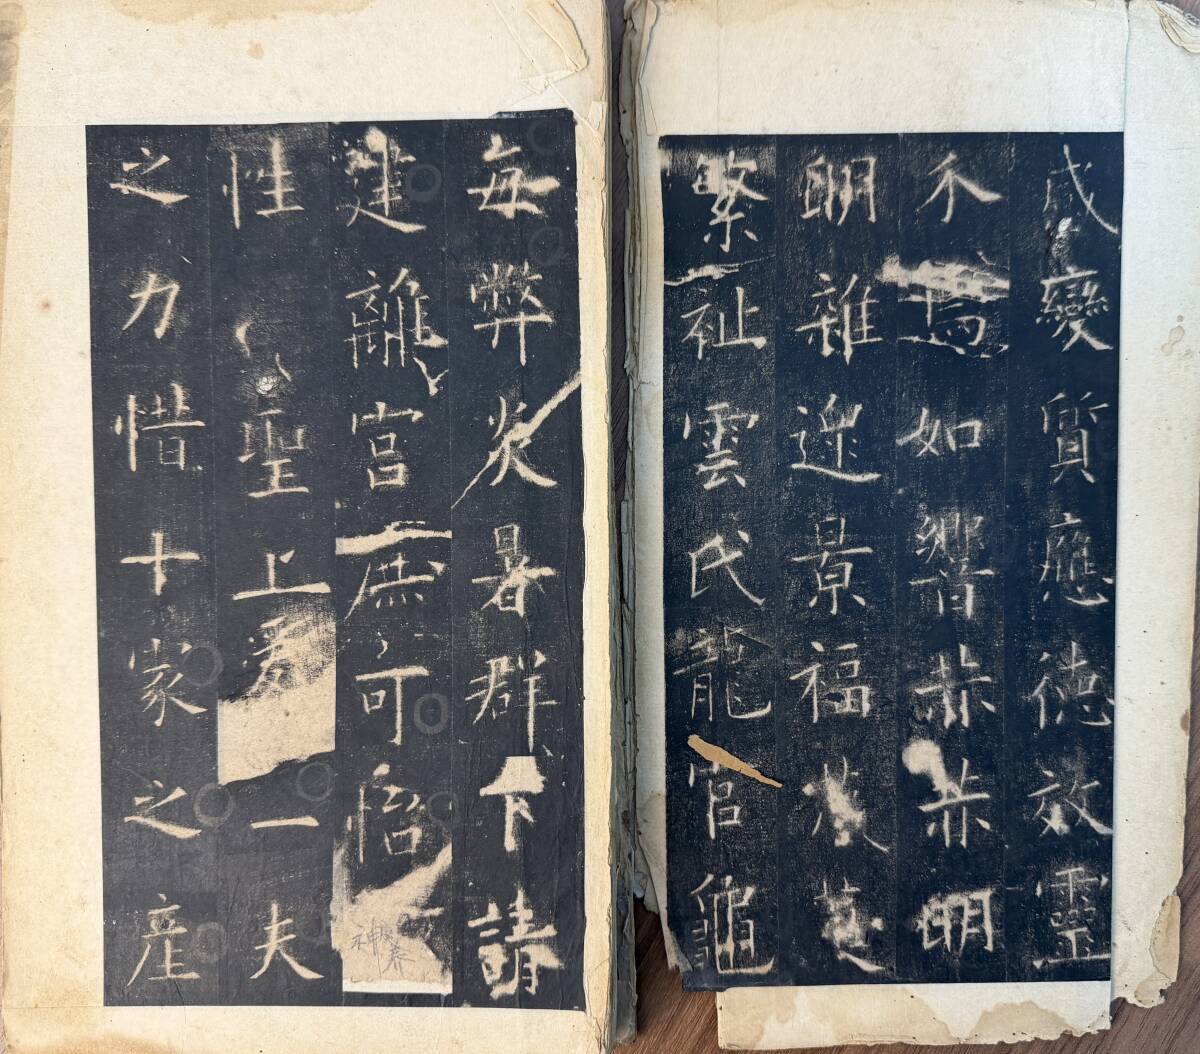 感變質應德效靈
介焉如響赫赫明
明雜遝景福葳蕤
繁祉雲氏龍官龜
每弊炎暑群下請
建離宮庶可怡神養
性聖上愛一夫
之力惜十家之產